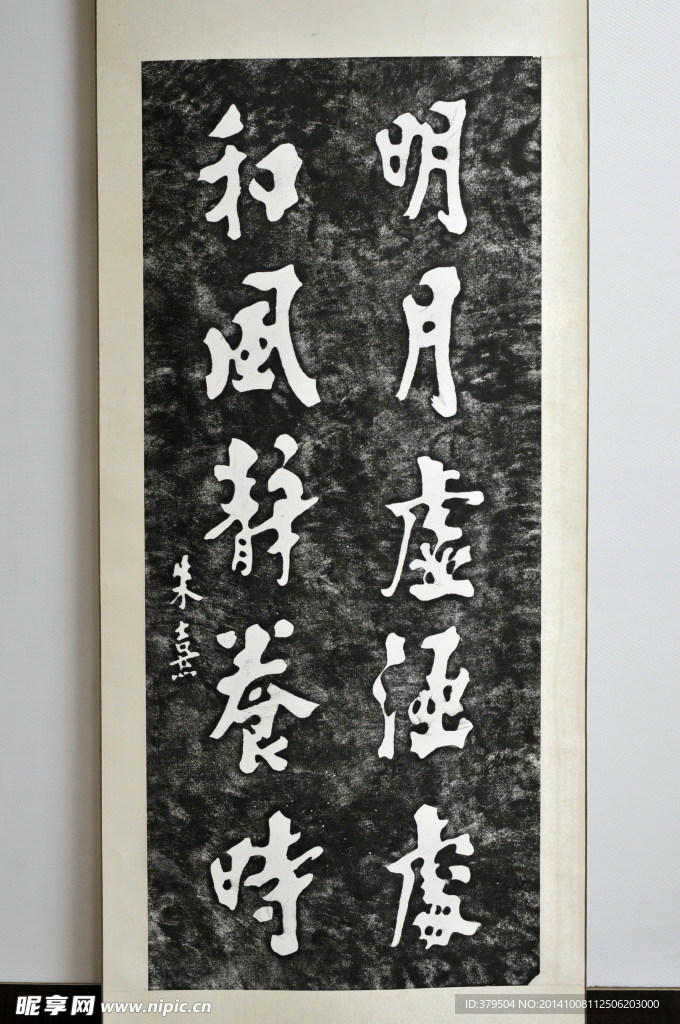 明月虛涵處
和風靜養時
朱熹
昵享网 www.nipic.cn
ID:379504 NO:20141008112506203000